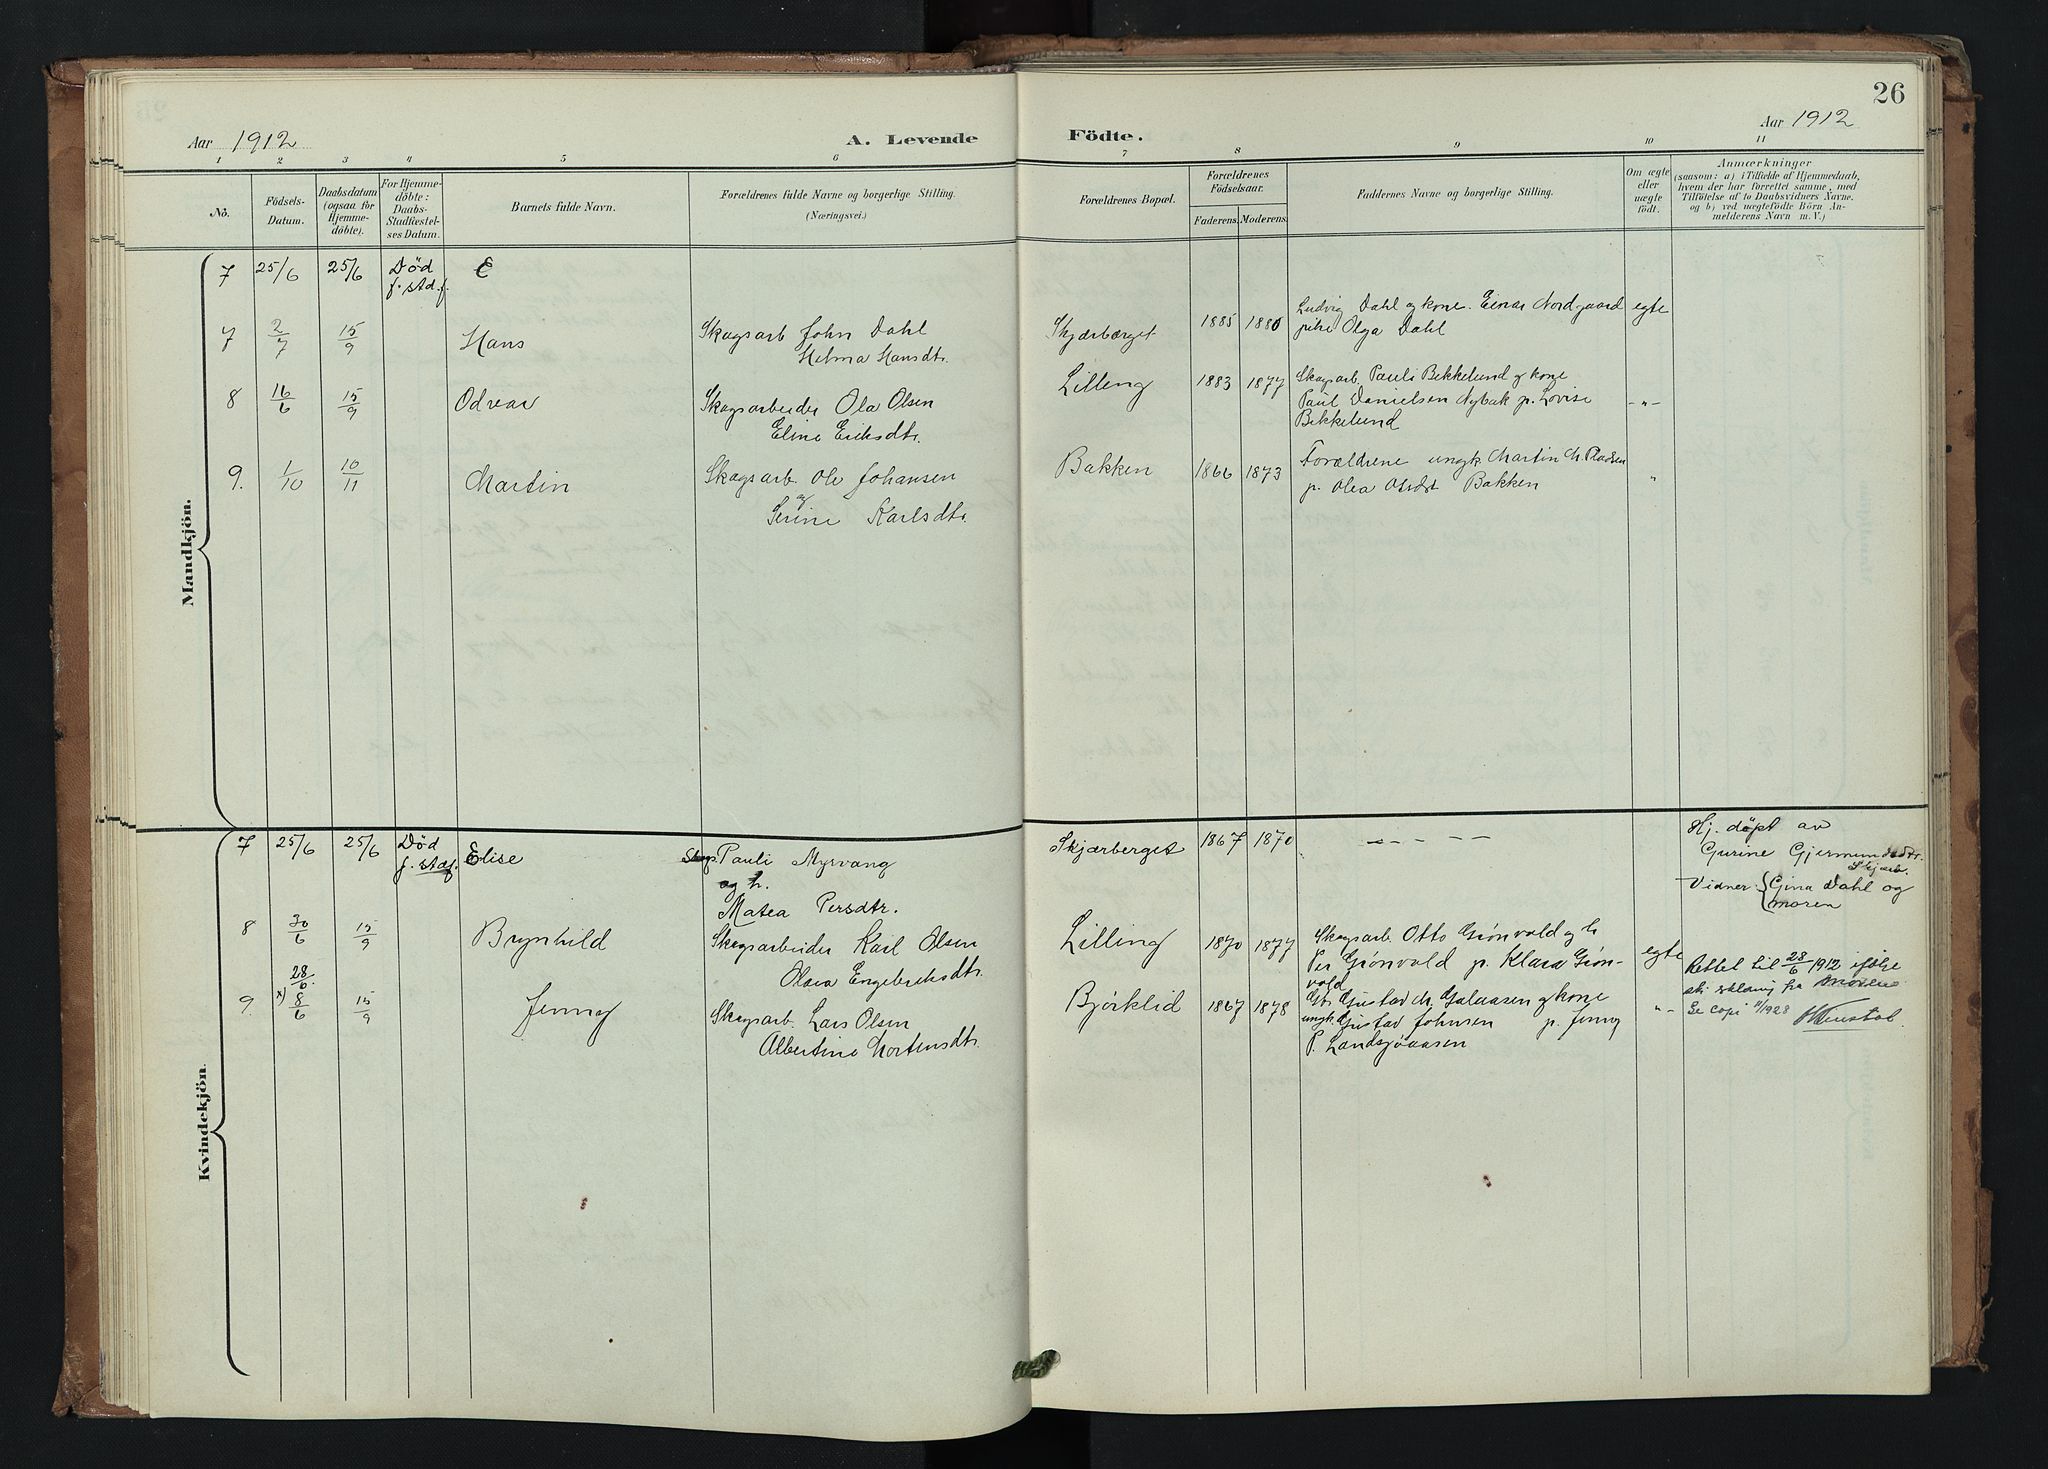 26
Aar 1912
A. Levende
Födte.
Aar 1912
1 2 3 4 5 6 7 8 9 10 11
No.
Födsels-
Datum.
Daabsdatum
(ogsaa for
Hjemme-
döbte).
For Hjemme-
döbte:
Daabs-
Stadfæstel-
ses Datum.
Barnets fulde Navn.
Forældrenes fulde Navne og borgerlige Stilling.
(Næringsvei.)
Forældrenes Bopæl.
Forældrenes
Födselsaar.
Faderens.
Moderens.
Faddernes Navne og borgerlige Stilling.
Om ægte
eller
uægte
födt.
Anmærkninger
(saasom: a) i Tilfælde af Hjemmedaab,
hvem der har forrettet samme, med
Tilföielse af to Daabsvidners Navne,
og b) ved uægtefödte Börn An-
melderens Navn m. V.)
Mandkjön.
7 25/6 25/6 Död
f. std.f.
7 2/7 15/9 Hans
Skogsarb John Dahl
Helma Hansdtr.
Skjærbærget 1885 1886
Ludvig Dahl og kone. Einar Nordgaard
pike Olga Dahl
egte
8 16/6 15/9 Odvar
Skogsarbeider Ola Olsen
Eline Eriksdtr.
Lilleng 1883 1877
Skogsarb. Pauli Bekkelund og kone
Paul Danielsen Nybak p. Lovise
Bekkelund
-"-
9. 1/10 10/11 Martin
Skogsarb. Ole Johansen
og
Serine Karlsdtr.
Bakken 1866 1873
Forældrene ungk Martin M. Pladsen
p. Olea Olsdtr Bakken
"
Kvindekjön.
7 25/6 25/6 Död
f. stdf.
Elise
Skogs. Pauli Myrvang
og h.
Matea Persdtr.
Skjærberget 1867 1870
- - - -
Hj. döpt av
Gurine Gjermundsdtr.
Skjærb.
Vidner: Gina Dahl og
moren
8 30/6 15/9 Brynhild
Skogsarbeider Karl Olsen
Olava Engebretsdtr.
Lilling 1870 1877
Skogsarb. Otto Grönvold og h
Per Grönvold p. Klara Grön-
vold
egte
28/6
9. x) 8/6 15/9 Jenny
Skogsarb. Lars Olsen
Albertine Mortensdtr.
Björklid 1867 1878
Gb. Gustav M. Galaasen og kone
ungk. Gustav Johnsen p. Jenny
P. Landsjöaasen
"-
Rettet til 28/6 1912 ifölge
fra moren.
Se copi 11/1928